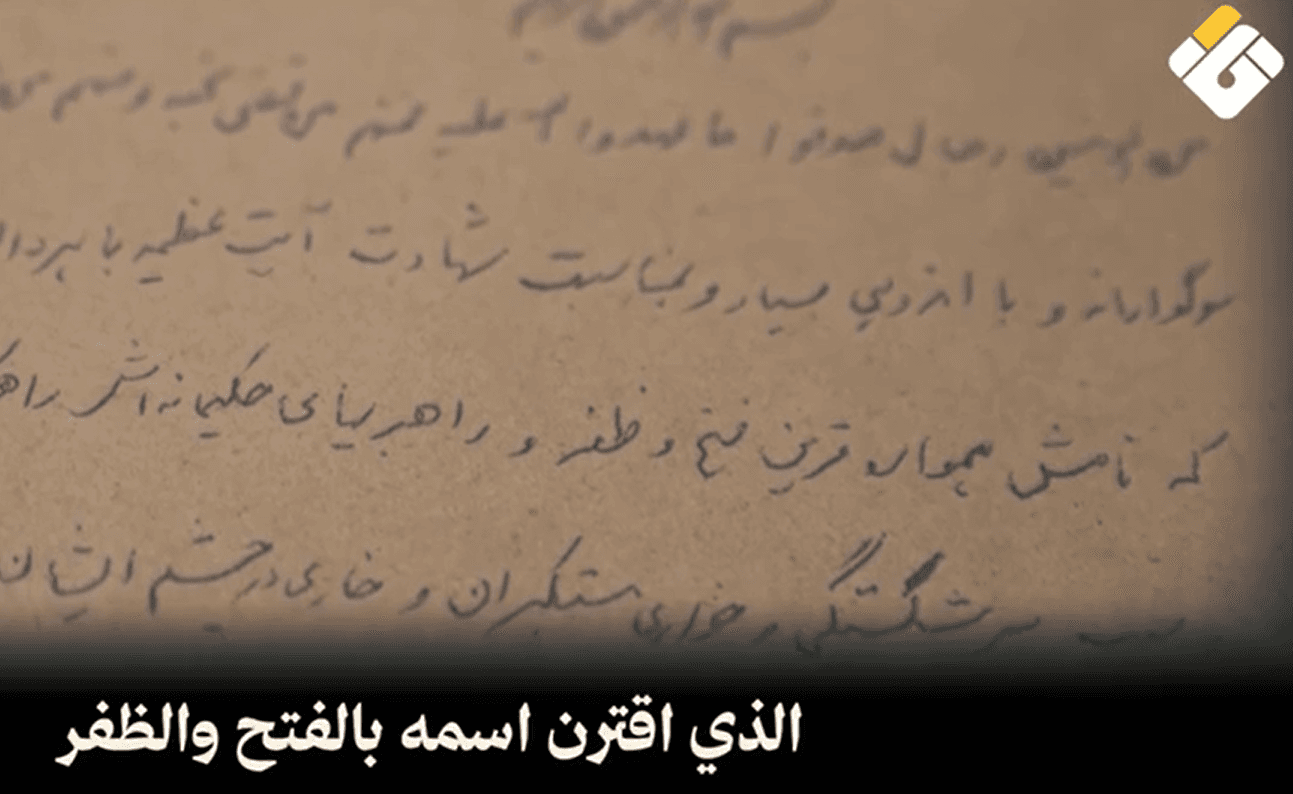 بسم الله الرحمن الرحیم
من المومنین رجال صدقوا ما عهدوا الله علیه فمنهم من قضی نحبه و منهم من
سوگوارانه و با اندوهی بسیار و بمناسبت شهادت آیت عظیمه با
که نامش همواره قرین فتح و ظفر و راهبریهای حکیمانه‌اش
سرشکستگی و خواری مستکبران و خاری در چشم ایشان
الذي اقترن اسمه بالفتح والظفر